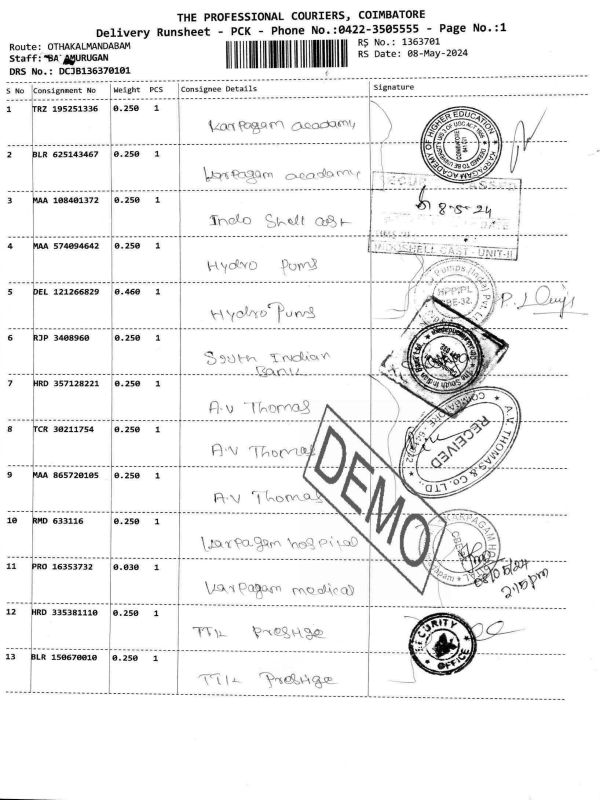 THE PROFESSIONAL COURIERS, COIMBATORE
Delivery Runsheet - PCK - Phone No.:0422-3505555 - Page No.:1
Route: OTHAKALMANDABAM
RS No.: 1363701
Staff: BA AMURUGAN
RS Date: 08-May-2024
DRS No.: DCJB136370101
S No Consignment No Weight PCS Consignee Details Signature
1 TRZ 195251336 0.250 1 Karpagam acadamy
KARPAGAM ACADEMY OF HIGHER EDUCATION
COIMBATORE
641 021
2 BLR 625143467 0.250 1 Karpagam acadamy
3 MAA 108401372 0.250 1 Indo Shell cast
8-5-24
DATE
INDOSHELL CAST UNIT-II
4 MAA 574094642 0.250 1 Hydro Pums
Pumps (India) Pvt. L
HPPIPL
CBE-32.
5 DEL 121266829 0.460 1 Hydro Pums
6 RJP 3408960 0.250 1 South Indian
Bank
The South Indian Bank Ltd.
7 HRD 357128221 0.250 1 A.V Thomas
8 TCR 30211754 0.250 1 A.V Thomas
A.V. THOMAS & CO. LTD.
RECEIVED
COIMBATORE
9 MAA 865720105 0.250 1 A.V Thomas
DEMO
10 RMD 633116 0.250 1 Karpagam hospital
KARPAGAM
08/05/24
11 PRO 16353732 0.030 1 Karpagam medical
12 HRD 335381110 0.250 1 TTK Prestige
SECURITY
OFFICE
13 BLR 150670010 0.250 1 TTK Prestige